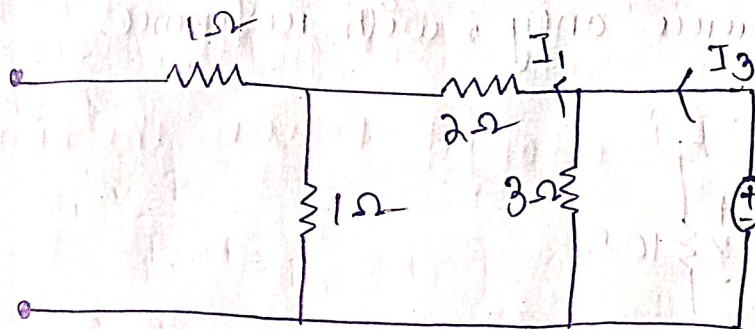 1Ω
I1
I3
2Ω
1Ω
3Ω
+
-